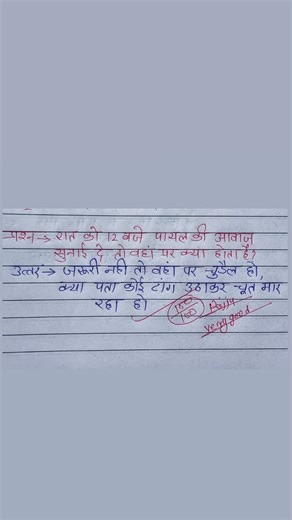 प्रश्न→ रात को 12 बजे पायल की आवाज
सुनाई दे, तो वहां पर क्या होता है?
उत्तर→ जरूरी नही तो वहां पर चुड़ैल हो,
क्या पता कोई टांग उठाकर चूत मार
रहा हो
100
100
very good